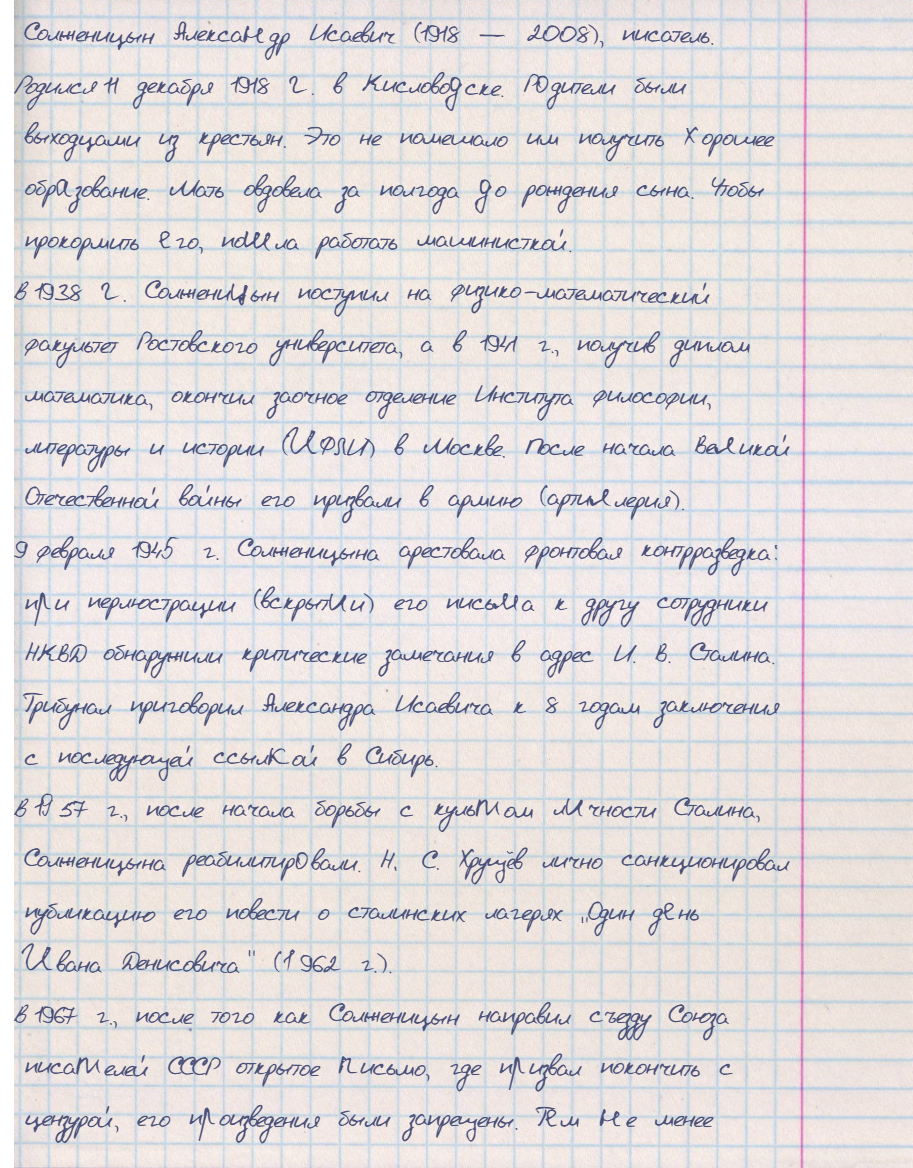 Солженицын Александр Исаевич (1918 — 2008), писатель.
Родился 11 декабря 1918 г. в Кисловодске. Родители были
выходцами из крестьян. Это не помешало им получить хорошее
образование. Мать овдовела за полгода до рождения сына. Чтобы
прокормить его, пошла работать машинисткой.
В 1938 г. Солженицын поступил на физико-математический
факультет Ростовского университета, а в 1941 г., получив диплом
математика, окончил заочное отделение Института философии,
литературы и истории (ИФЛИ) в Москве. После начала Великой
Отечественной войны его призвали в армию (артиллерия).
9 февраля 1945 г. Солженицына арестовала фронтовая контрразведка:
при перлюстрации (вскрытии) его письма к другу сотрудники
НКВД обнаружили критические замечания в адрес И. В. Сталина.
Трибунал приговорил Александра Исаевича к 8 годам заключения
с последующей ссылкой в Сибирь.
В 1957 г., после начала борьбы с культом личности Сталина,
Солженицына реабилитировали. Н. С. Хрущёв лично санкционировал
публикацию его повести о сталинских лагерях „Один день
Ивана Денисовича" (1962 г.).
В 1967 г., после того как Солженицын направил съезду Союза
писателей СССР открытое письмо, где призвал покончить с
цензурой, его произведения были запрещены. Тем не менее